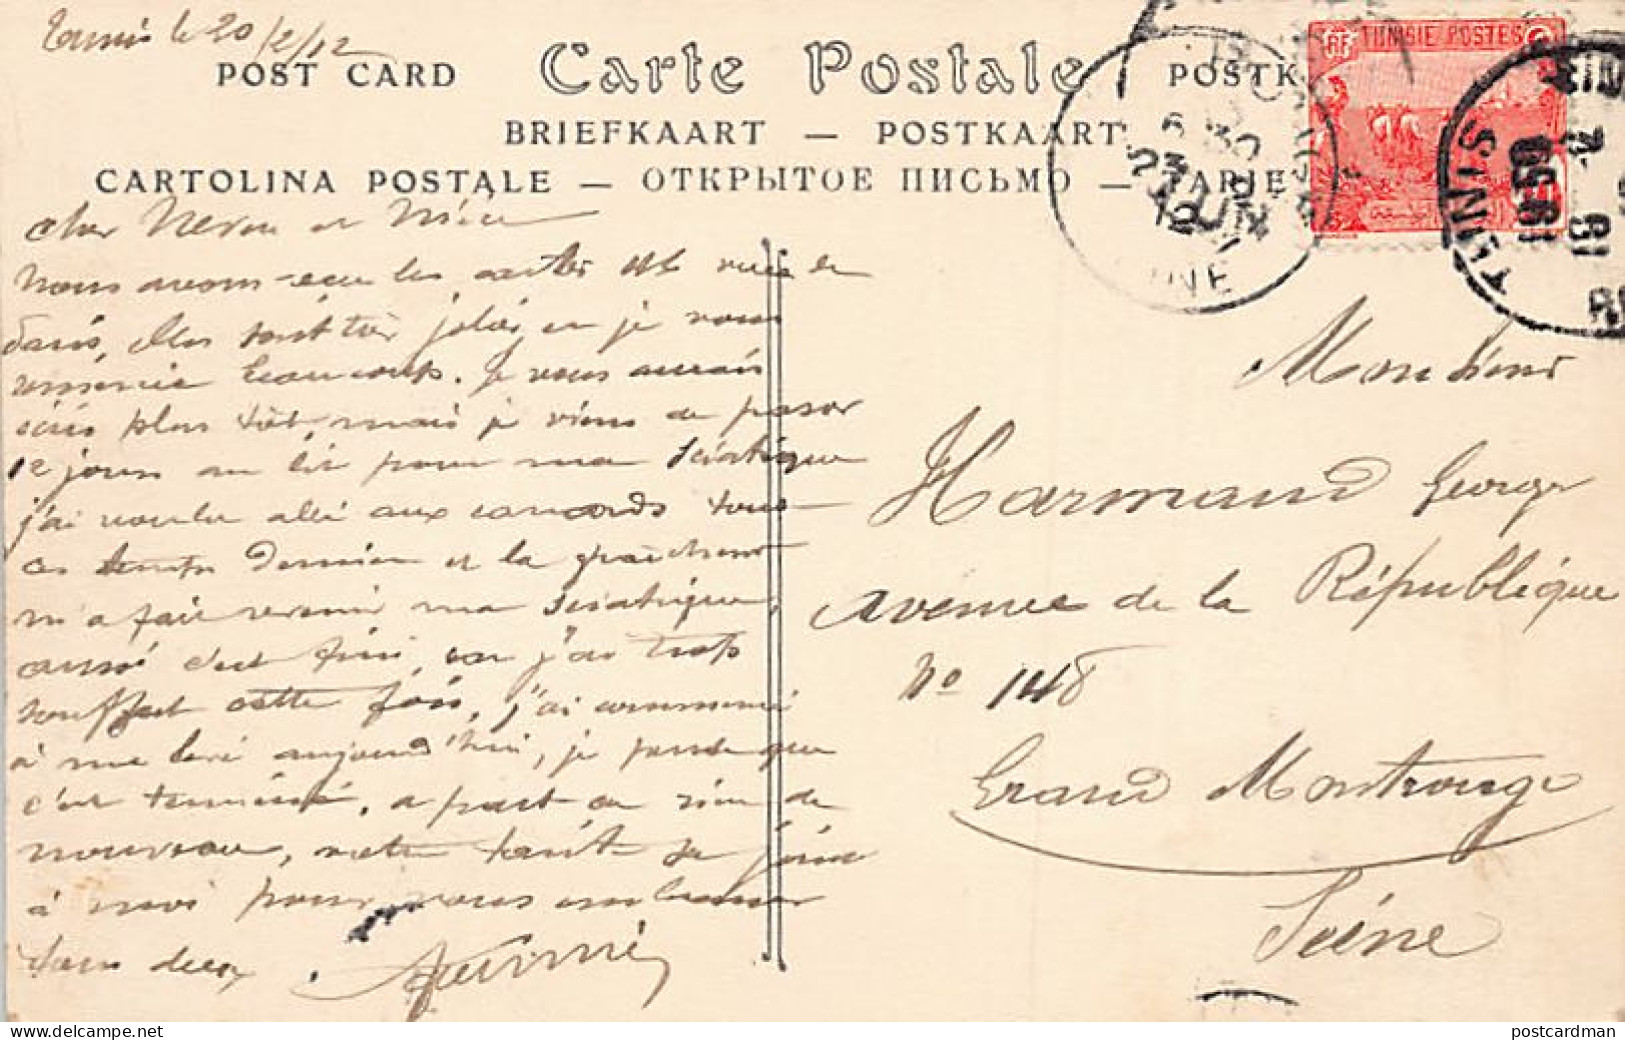 Tunis le 20/2/12
POST CARD
Carte Postale
POSTK
BRIEFKAART — POSTKAART
CARTOLINA POSTALE — ОТКРЫТОЕ ПИСЬМО — TARJE
RF TUNISIE POSTES
TUNIS
cher Neveu et Nièce
Nous avons reçu les cartes vue de
Paris, elles sont très jolies, je vous
remercie beaucoup. Je vous aurais
écris plus tôt, mais je viens de passer
12 jours au lit pour ma sciatique
j'ai voulu allé aux canards tous
ces temps dernier et la
m'a fait revenir ma sciatique,
aussi c'est fini, car j'ai trop
souffert cette fois, j'ai commencé
à me levé aujourd'hui, je pense que
c'est terminé, a part ça rien de
nouveau, votre tante se joint
à moi pour vous embrasser
tous deux.
Monsieur
Harmand Georges
Avenue de la République
No 148
Grand Montrouge
Seine
postcardman